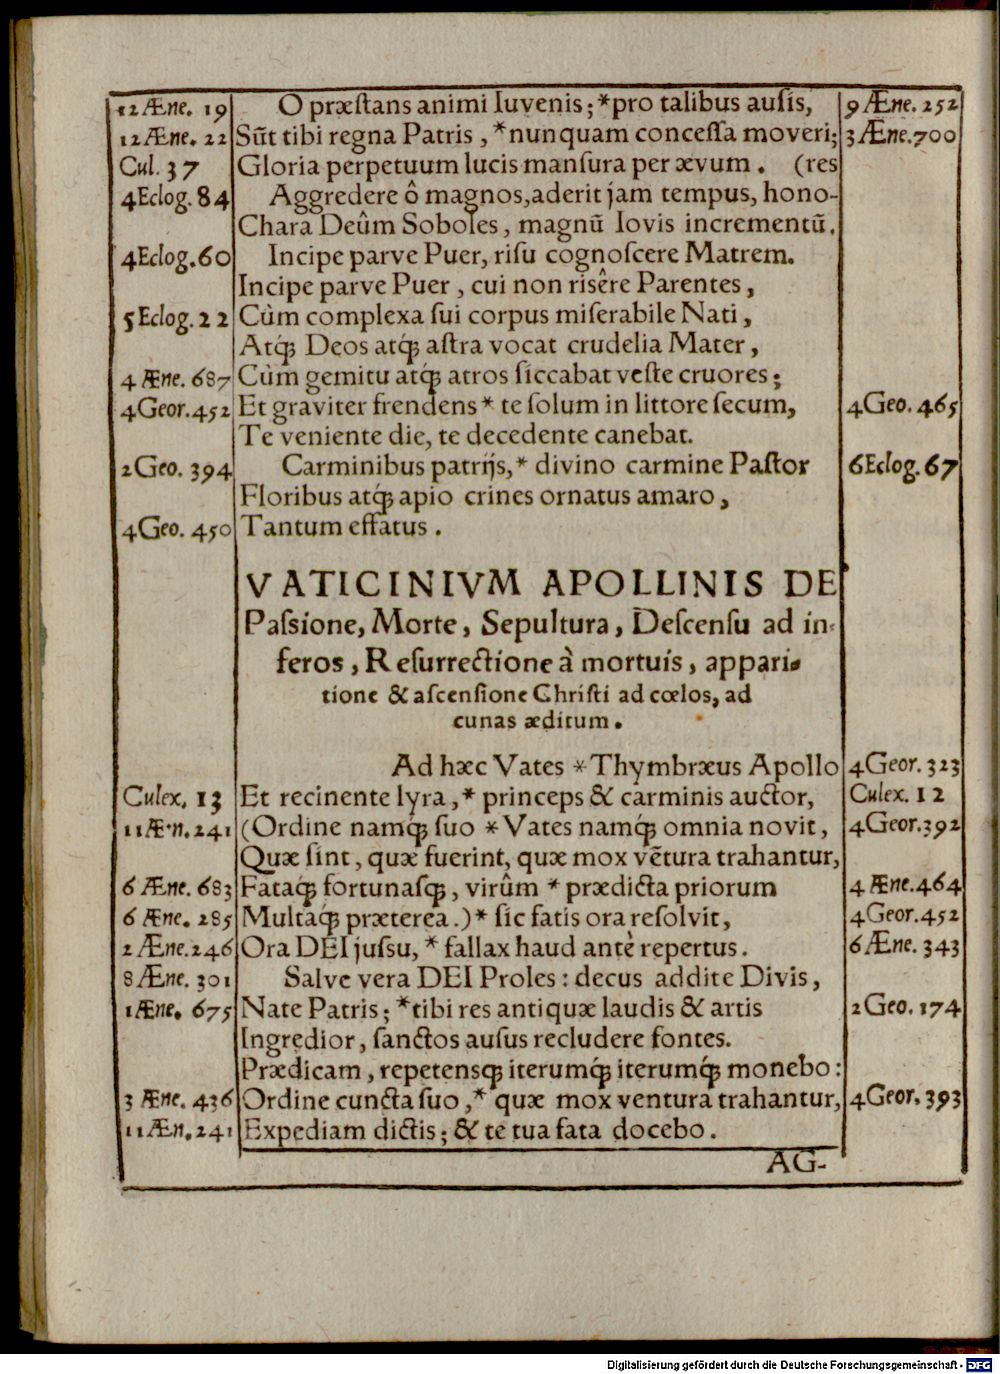 12 Æne. 19 O præstans animi Iuvenis; *pro talibus ausis, 9 Æne. 252
12 Æne. 22 Sūt tibi regna Patris, *nunquam concessa moveri; 3 Æne. 700
Cul. 37 Gloria perpetuum lucis mansura per ævum. (res
4 Eclog. 84 Aggredere ô magnos, aderit jam tempus, hono-
Chara Deûm Soboles, magnū Iovis incrementū.
4 Eclog. 60 Incipe parve Puer, risu cognoscere Matrem.
Incipe parve Puer, cui non risêre Parentes,
5 Eclog. 22 Cùm complexa sui corpus miserabile Nati,
Atq́; Deos atq́; astra vocat crudelia Mater,
4 Æne. 687 Cùm gemitu atq́; atros siccabat veste cruores;
4 Geor. 452 Et graviter frendens * te solum in littore secum, 4 Geo. 465
Te veniente die, te decedente canebat.
2 Geo. 394 Carminibus patrijs, * divino carmine Pastor 6 Eclog. 67
Floribus atq́; apio crines ornatus amaro,
4 Geo. 450 Tantum effatus.
VATICINIVM APOLLINIS DE
Passione, Morte, Sepultura, Descensu ad in-
feros, Resurrectione à mortuis, appari-
tione & ascensione Christi ad cœlos, ad
cunas æditum.
Ad hæc Vates * Thymbræus Apollo 4 Geor. 323
Culex. 13 Et recinente lyra, * princeps & carminis auctor, Culex. 12
11 Æn. 241 (Ordine namq́; suo * Vates namq́; omnia novit, 4 Geor. 392
Quæ sint, quæ fuerint, quæ mox vētura trahantur,
6 Æne. 683 Fataq́; fortunasq́;, virûm * prædicta priorum 4 Æne. 464
6 Æne. 285 Multaq́; præterea.) * sic fatis ora resolvit, 4 Geor. 452
2 Æne. 246 Ora DEI jussu, * fallax haud antè repertus. 6 Æne. 343
8 Æne. 301 Salve vera DEI Proles: decus addite Divis,
1 Æne. 675 Nate Patris; *tibi res antiquæ laudis & artis 2 Geo. 174
Ingredior, sanctos ausus recludere fontes.
Prædicam, repetensq́; iterumq́; iterumq́; monebo:
3 Æne. 436 Ordine cuncta suo, * quæ mox ventura trahantur, 4 Geor. 393
11 Æn. 241 Expediam dictis; & te tua fata docebo.
AG-
Digitalisierung gefördert durch die Deutsche Forschungsgemeinschaft - DFG